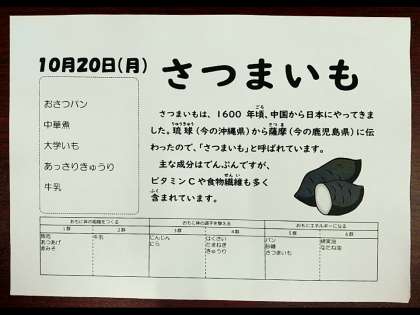 10月20日(月)
さつまいも
おさつパン
中華煮
大学いも
あっさりきゅうり
牛乳
さつまいもは、1600年頃、中国から日本にやってきま
した。琉球(今の沖縄県)から薩摩(今の鹿児島県)に伝
わったので、「さつまいも」と呼ばれています。
主な成分はでんぷんですが、
ビタミンCや食物繊維も多く
含まれています。
おもに体の組織をつくる おもに体の調子を整える おもにエネルギーになる
1群 2群 3群 4群 5群 6群
豚肉 牛乳 にんじん はくさい パン 綿実油
あつあげ にら たまねぎ 砂糖 なたね油
赤みそ きゅうり さつまいも